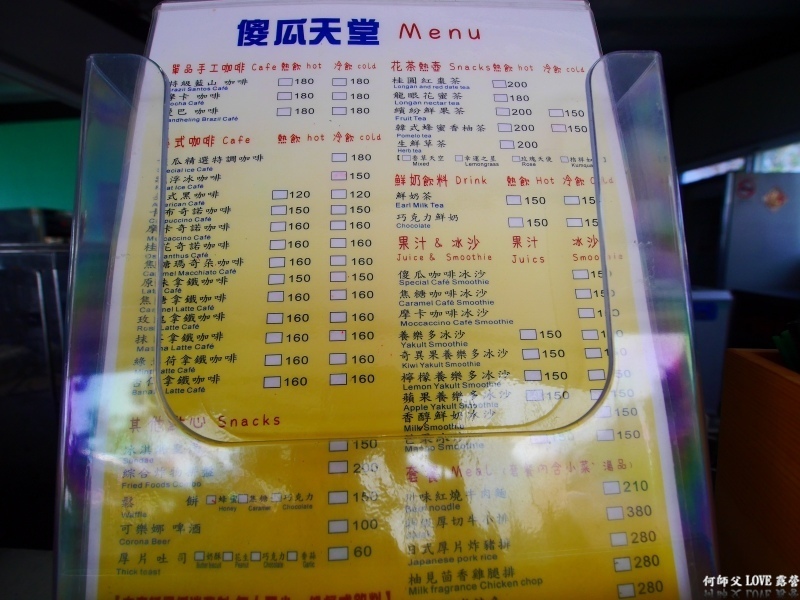 傻瓜天堂 Menu
單品手工咖啡 Cafe 熱飲 hot 冷飲 cold
特級藍山 咖啡 180 180
Brazil Santos Café
摩卡 咖啡 180 180
Mocha Café
曼巴 咖啡 180 180
Mandheling Brazil Café
式咖啡 Cafe 熱飲 hot 冷飲 cold
瓜精選特調咖啡 180
Special Ice Café
浮冰咖啡 150
Float Ice Café
式黑咖啡 120 120
American Café
卡布奇諾咖啡 150 150
Cappuccino Café
摩卡奇諾咖啡 160 160
Moccaccino Café
桂花奇諾咖啡 160 160
Osmanthus Café
焦糖瑪奇朵咖啡 160 160
Caramel Macchiato Café
原味拿鐵咖啡 150 150
Latte Café
焦糖拿鐵咖啡 160 160
Caramel Latte Café
玫瑰拿鐵咖啡 160 160
Rose Latte Café
抹茶拿鐵咖啡 160 160
Matcha Latte Café
蜂 荷拿鐵咖啡 160 160
Latte Café
拿鐵咖啡 160 160
Banana Latte Café
其他點心 Snacks
150
綜合 200
Fried Foods Combo
鬆 餅 蜂蜜 焦糖 巧克力 150
Waffle Honey Caramel Chocolate
可樂娜 啤酒 100
Corona Beer
厚片吐司 奶酥 花生 巧克力 香蒜 60
Thick toast
花茶熱壺 Snacks 熱飲 hot 冷飲 cold
桂圓紅棗茶 200
Longan and red date tea
龍眼花蜜茶 180
Longan nectar tea
繽紛鮮果茶 200 150
Fruit Tea
韓式蜂蜜香柚茶 200 150
Pomelo tea
生鮮草茶 200
Herb tea
香草天空 幸運之星 玫瑰天使 桔祥如
Mixed Lemongrass Rose Kumqua
鮮奶飲料 Drink 熱飲 Hot 冷飲 Cold
鮮奶茶 150 150
Earl Milk Tea
巧克力鮮奶 150 150
Chocolate
果汁 & 冰沙 果汁 冰沙
Juice & Smoothie Juics Smoothie
傻瓜咖啡冰沙 15
Special Café Smoothie
焦糖咖啡冰沙 15
Caramel Café Smoothie
摩卡咖啡冰沙 15
Moccaccino Café Smoothie
養樂多冰沙 150 150
Yakult Smoothie
奇異果養樂多冰沙 150 150
Kiwi Yakult Smoothie
檸檬養樂多冰沙 150 150
Lemon Yakult Smoothie
蘋果養樂多冰沙 150 150
Apple Yakult Smoothie
香醇鮮奶冰沙 150
Milk Smoothie
芒果冰沙 150
Mango Smoothie
套餐 Meal (套餐內含小菜、湯品)
川味紅燒牛肉麵 210
Beef noodle
厚切牛小排 380
日式厚片炸豬排 280
Japanese pork rice
柚見茴香雞腿排 280
Milk fragrance Chicken chop
何師父 LOVE 露營